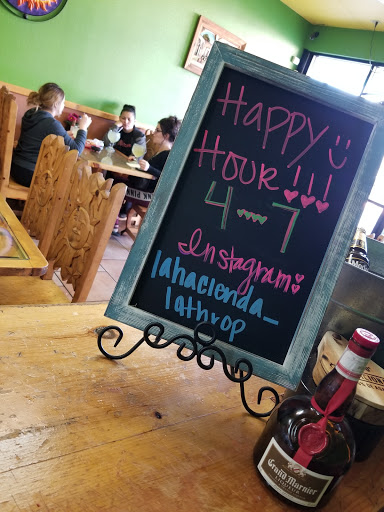 Happy
Hour!!!
4-7
Instagram:
lahacienda_
lathrop
Grand Marnier